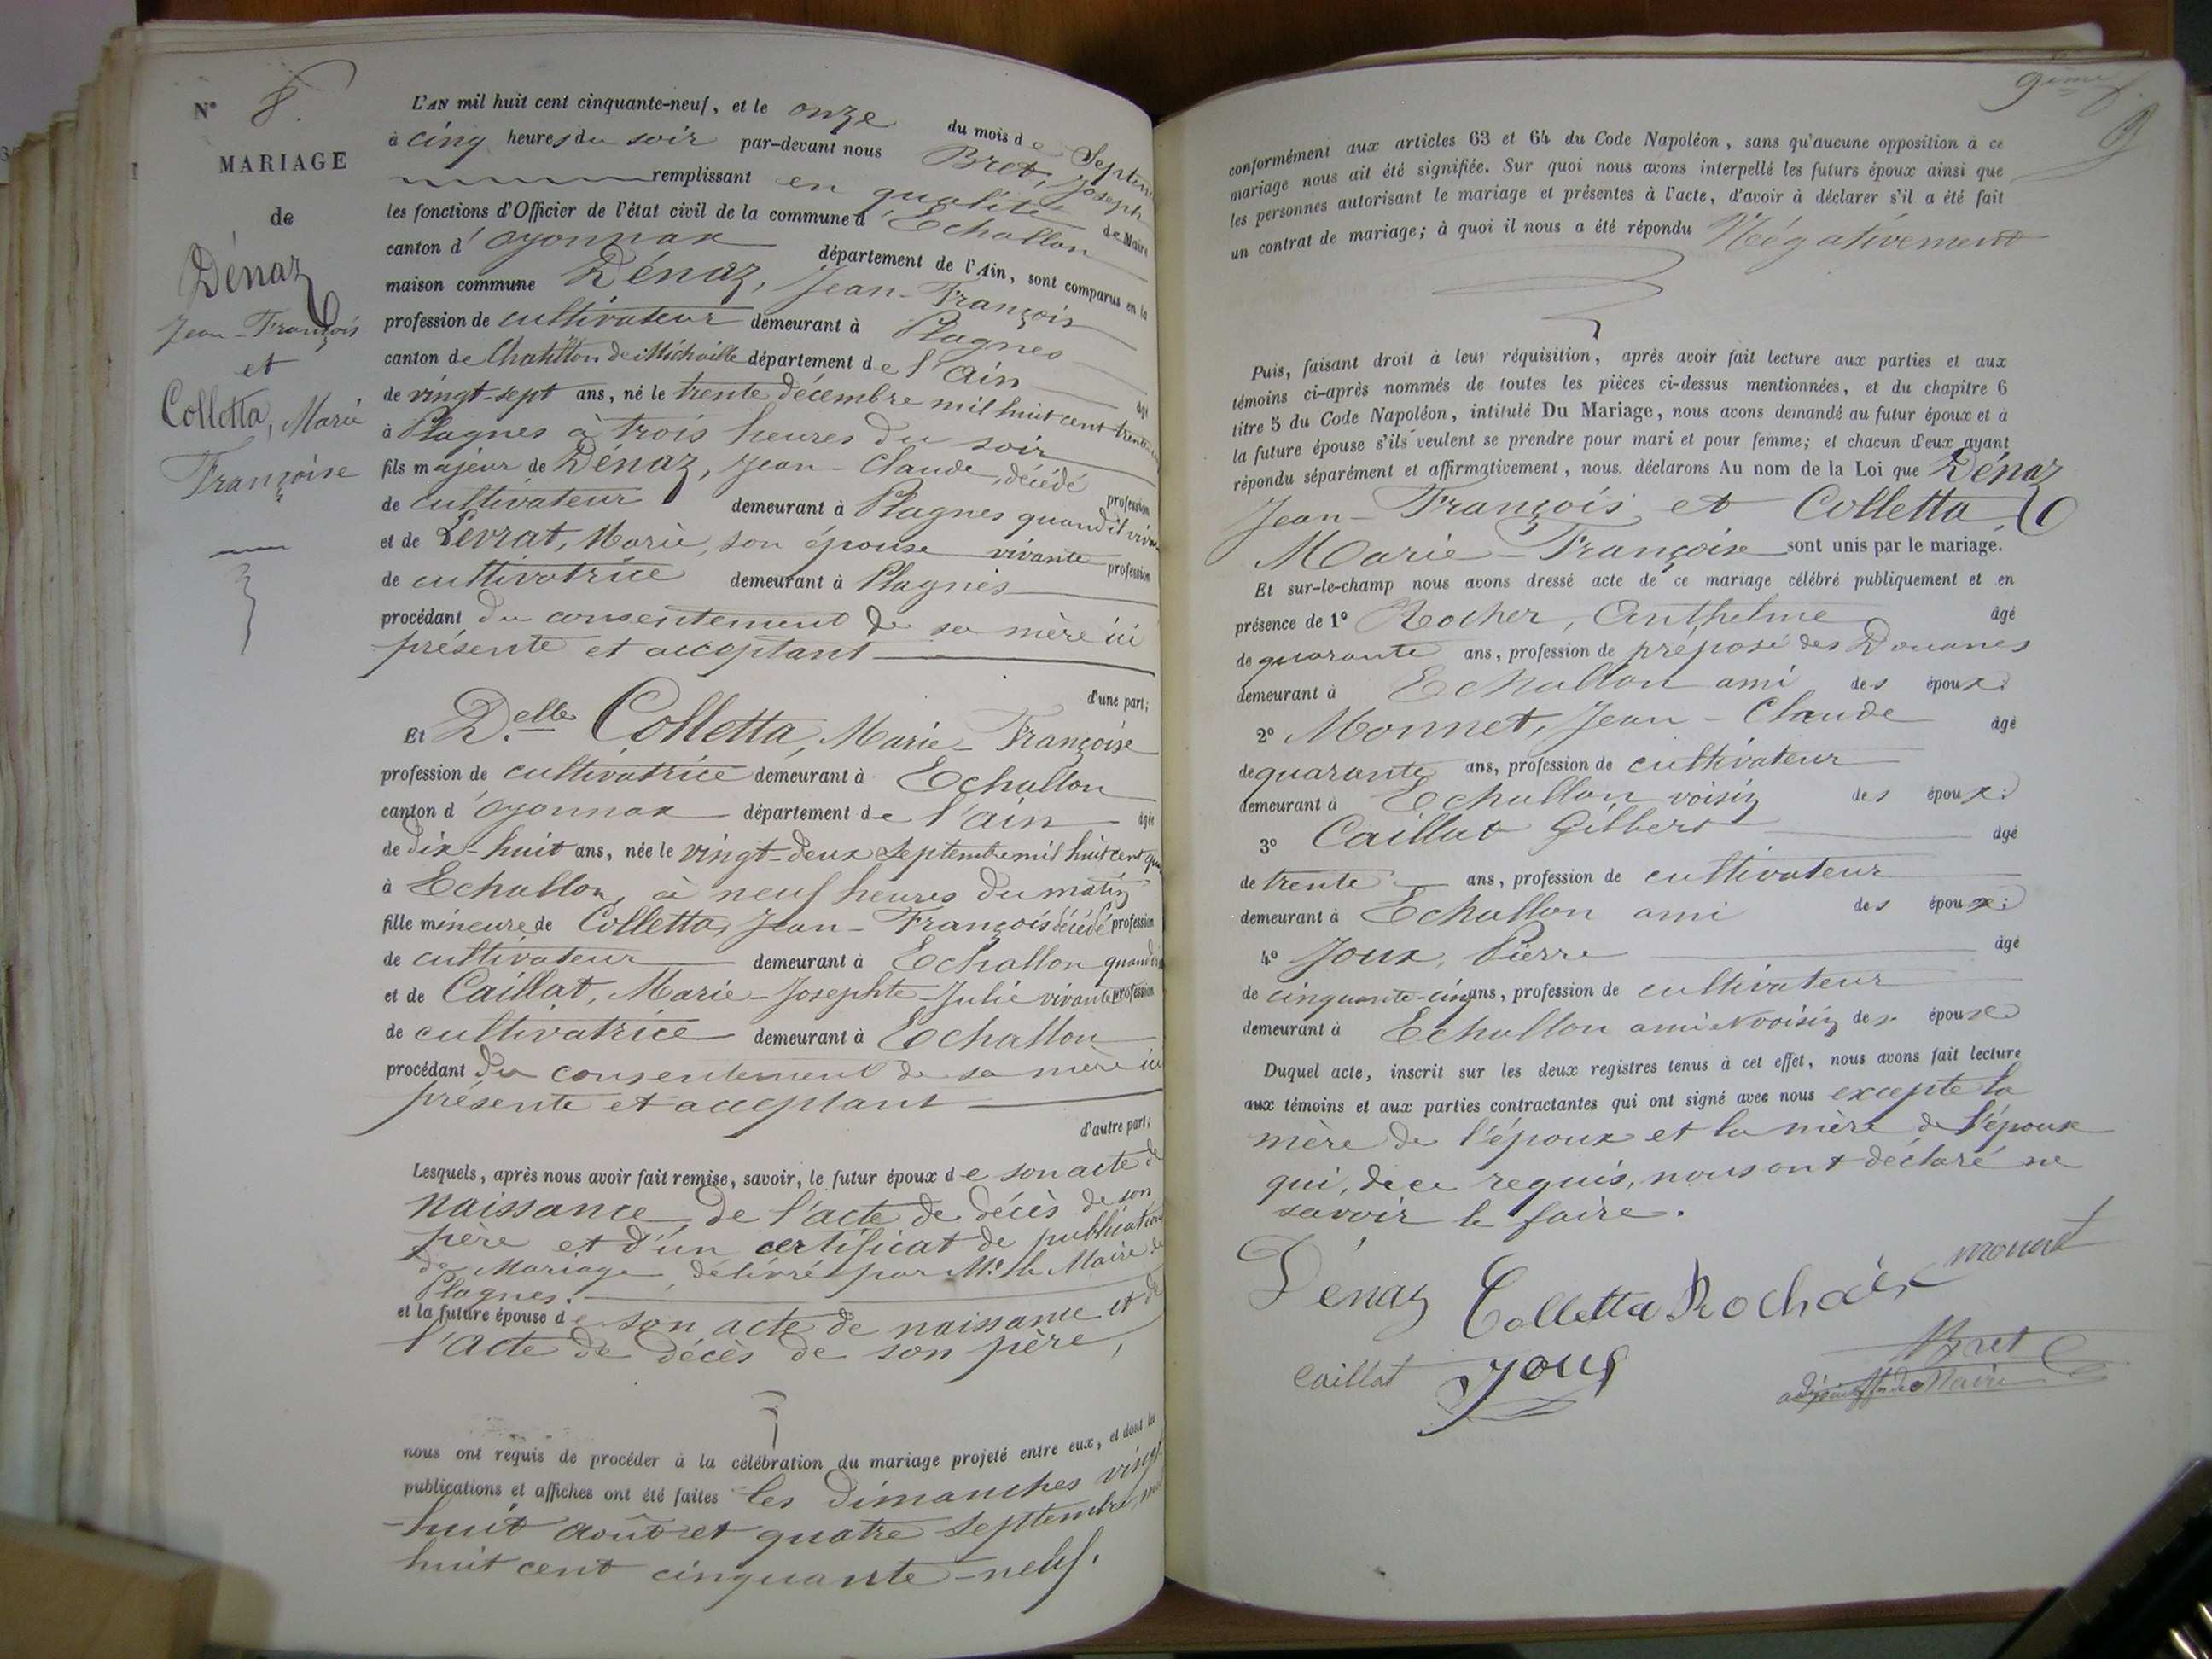 N° 8.
MARIAGE
de
Dénaz
Jean-François
et
Colletta, Marie
Françoise
L'AN mil huit cent cinquante-neuf, et le onze du mois de Septem
à cinq heures du soir par-devant nous Bret, Joseph
remplissant en qualité de Maire
les fonctions d'Officier de l'état civil de la commune d'Echallon
canton d'Oyonnax département de l'Ain, sont comparus en la
maison commune Dénaz, Jean-François
profession de cultivateur demeurant à Plagnes
canton de Chatillon de Michaille département de l'Ain âgé
de vingt-sept ans, né le trente décembre mil huit cent trente
à Plagnes à trois heures du soir
fils majeur de Dénaz, Jean-Claude, décédé profession
de cultivateur demeurant à Plagnes quand il vivai
et de Levrat, Marie, son épouse vivante profession
de cultivatrice demeurant à Plagnes
procédant du consentement de sa mère ici
présente et acceptant
d'une part;
Et Delle Colletta, Marie-Françoise
profession de cultivatrice demeurant à Echallon
canton d'Oyonnax département de l'ain âgée
de dix-huit ans, née le vingt-deux Septembre mil huit cent qua
à Echallon, à neuf heures du matin
fille mineure de Colletta, Jean-François décédé profession
de cultivateur demeurant à Echallon quand il
et de Caillat, Marie-Josephte-Julie vivante profession
de cultivatrice demeurant à Echallon
procédant du consentement de sa mère ici
présente et acceptant
d'autre part;
Lesquels, après nous avoir fait remise, savoir, le futur époux de son acte de
naissance, de l'acte de décès de son
père et d'un certificat de publication
de Mariage, délivré par Mr. le Maire de
Plagnes.
et la future épouse de son acte de naissance et de
l'acte de décès de son père,
nous ont requis de procéder à la célébration du mariage projeté entre eux, et dont les
publications et affiches ont été faites les dimanches vingt
-huit août et quatre septembre, mil
huit cent cinquante-neuf.
9ème f.
conformément aux articles 63 et 64 du Code Napoléon, sans qu'aucune opposition à ce
mariage nous ait été signifiée. Sur quoi nous avons interpellé les futurs époux ainsi que
les personnes autorisant le mariage et présentes à l'acte, d'avoir à déclarer s'il a été fait
un contrat de mariage; à quoi il nous a été répondu Négativement
Puis, faisant droit à leur réquisition, après avoir fait lecture aux parties et aux
témoins ci-après nommés de toutes les pièces ci-dessus mentionnées, et du chapitre 6
titre 5 du Code Napoléon, intitulé Du Mariage, nous avons demandé au futur époux et à
la future épouse s'ils veulent se prendre pour mari et pour femme; et chacun d'eux ayant
répondu séparément et affirmativement, nous déclarons Au nom de la Loi que Dénaz
Jean-François et Colletta,
Marie-Françoise sont unis par le mariage.
Et sur-le-champ nous avons dressé acte de ce mariage célébré publiquement et en
présence de 1° Rocher, Anthelme âgé
de quarante ans, profession de préposé des Douanes
demeurant à Echallon ami des époux;
2° Monnet, Jean-Claude âgé
de quarante ans, profession de cultivateur
demeurant à Echallon voisin des époux;
3° Caillat Gilbert âgé
de trente ans, profession de cultivateur
demeurant à Echallon ami des époux;
4° Joux, Pierre âgé
de cinquante-cinq ans, profession de cultivateur
demeurant à Echallon ami et voisin des époux
Duquel acte, inscrit sur les deux registres tenus à cet effet, nous avons fait lecture
aux témoins et aux parties contractantes qui ont signé avec nous excepte la
mère de l'époux et la mère de l'épouse
qui, de ce requis, nous ont déclaré ne
savoir le faire.
Dénaz Colletta Rochair monnet
Caillat Joux Bret